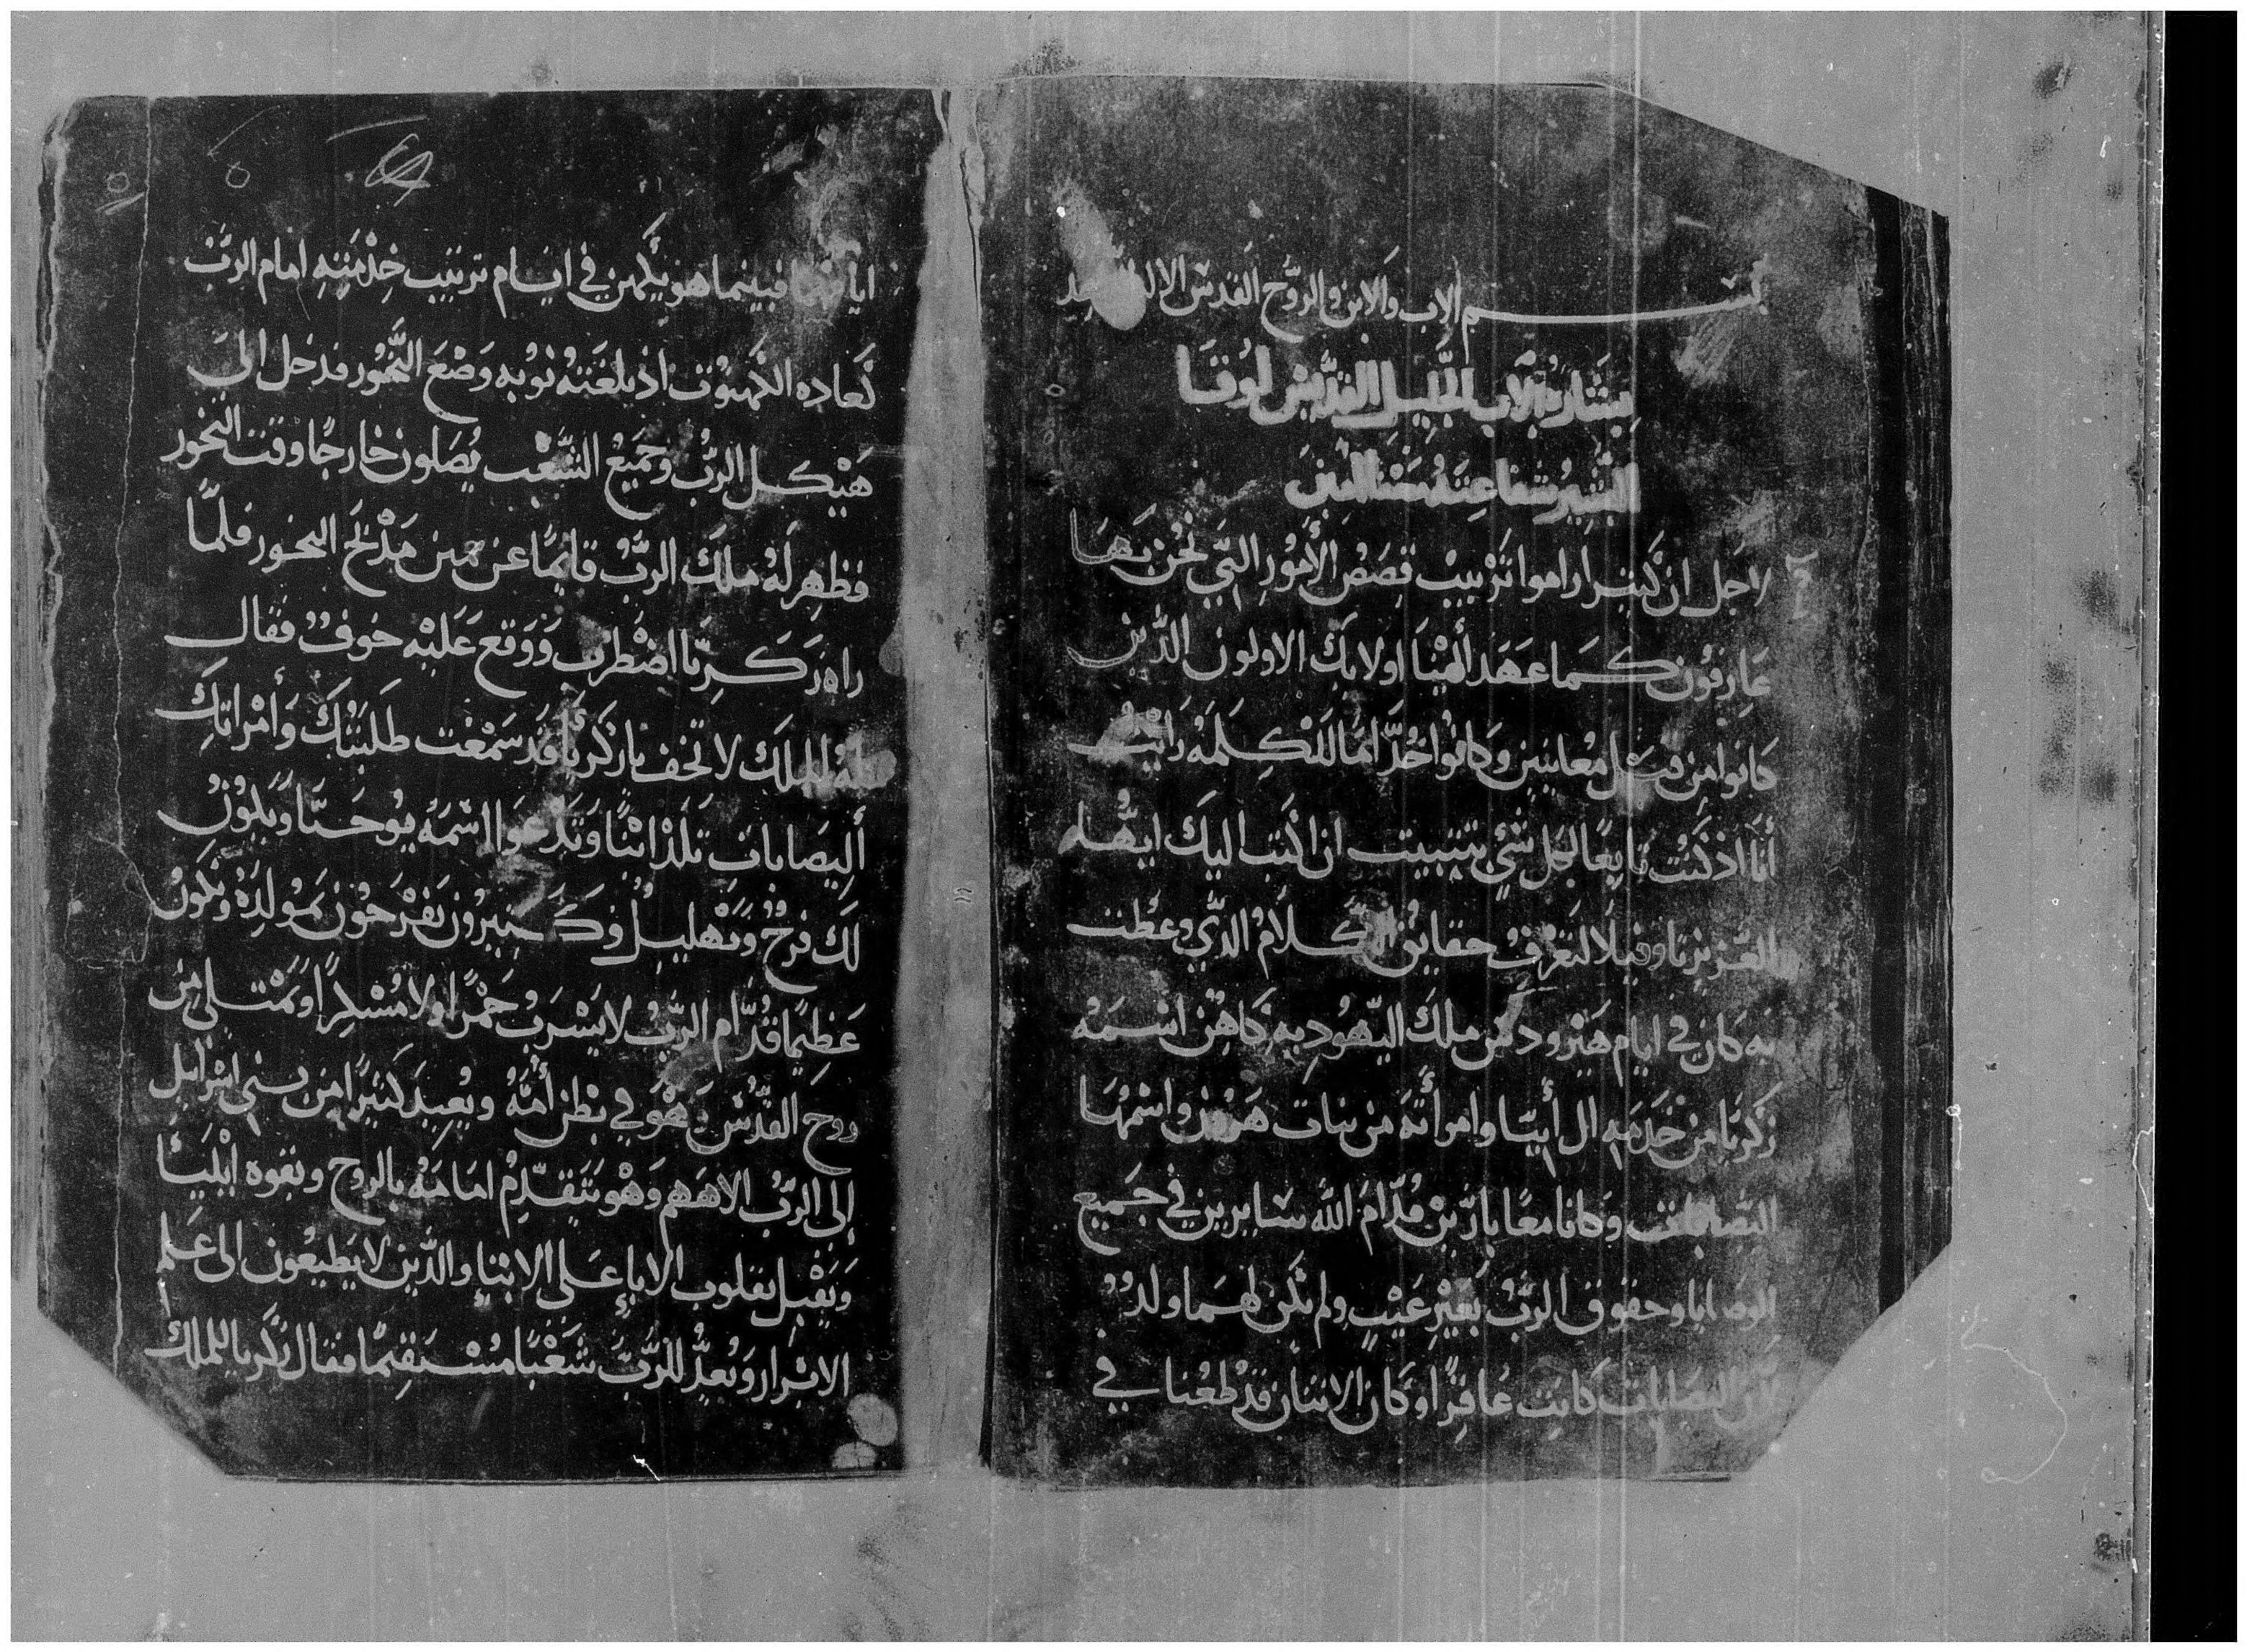 بسم الاب والابن والروح القدس الاله
بشارة الاب الجليل القديس لوقا
البشير شفاعته
لاجل ان كثير اراموا ترتيب قصص الأمور التي نحن بها
عارفون كما عهد ألينا اولايك الاولون الذين
كانوا من قبل معاينين وكانوا خدّاما للكلمه رايت
أنا اذ كنت تابعًا لكل شي بتثبيت ان اكتب اليك ايها
العزيز تاوفيلا لتعرف حقايق الكلام الذي وعظت
به كان في ايام هيرودس ملك اليهوديه كاهن اسمه
زكريا من خدمه ال أبيا وامرأته من بنات هرون واسمها
اليصابات وكانا معًا بارّين قدّام الله سايرين في جميع
الوصايا وحقوق الرب بغير عيب ولم يكن لهما ولد
لان اليصابات كانت عاقرًا وكان الاثنان قد طعنا في
ايامهما فبينما هو يكهن في ايام ترتيب خدمته امام الرب
كعاده الكهنوت اذ بلغته نوبه وضع البخور فدخل الى
هيكل الرب وجميع الشعب يصلون خارجًا وقت البخور
فظهر له ملك الرب قايمًا عن يمين مذبح البخور فلمّا
راه زكريا اضطرب ووقع عليه خوف فقال
له الملك لا تخف يا زكريا قد سمعت طلبتك وأمراتك
أليصابات تلد ابنًا وتدعوا اسمه يوحنا ويكون
لك فرح وتهليل وكثيرون يفرحون بمولده ويكون
عظيمًا قدّام الرب لا يشرب خمرًا ولا مسكرًا ويمتلي من
روح القدس وهو في بطن أمه ويعيد كثيرًا من بني اسرايل
إلى الرب الاههم وهو يتقدم امامه بالروح وبقوه ايليا
ويقبل بقلوب الابا على الابنا والذين لا يطيعون الى علم
الابرار ويعدّ للرب شعبًا مستقيمًا فقال زكريا للملك